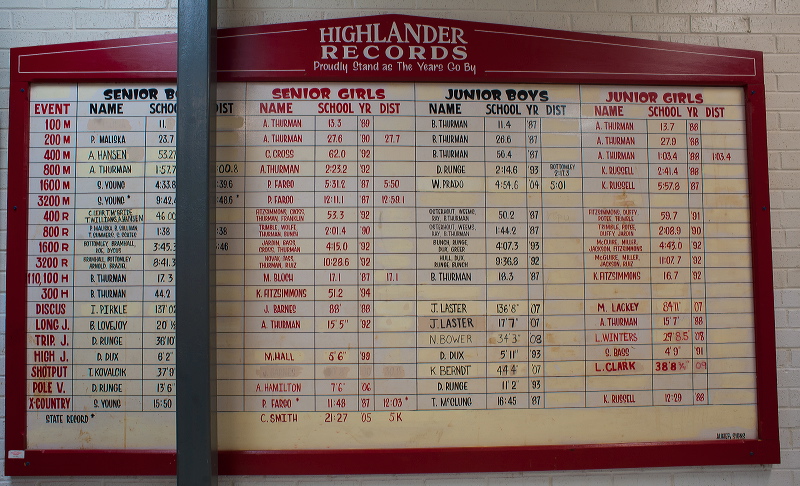 HIGHLANDER
RECORDS
Proudly Stand as The Years Go By
SENIOR BO SENIOR GIRLS JUNIOR BOYS JUNIOR GIRLS
EVENT NAME SCHO DIST NAME SCHOOL YR DIST NAME SCHOOL YR DIST NAME SCHOOL YR DIST
100 M 11. A. THURMAN 13.3 '89 B. THURMAN 11.4 '87 A. THURMAN 13.7 '88
200 M P. MALISKA 23.7 A. THURMAN 27.6 '90 27.7 R. THURMAN 26.6 '87 A. THURMAN 27.9 '88
400 M A. HANSEN 53.27 C. CROSS 62.0 '92 B. THURMAN 56.4 '87 A. THURMAN 1:03.4 '88 1:03.4
800 M A. THURMAN 1:57.7 :00.8 A. THURMAN 2:23.2 '92 D. RUNGE 2:14.6 '93 BOTTOMLEY 2:17.3 K. RUSSELL 2:41.4 '88
1600 M S. YOUNG 4:33.8 :39.6 P. FARGO 5:31.2 '87 5:50 W. PRADO 4:54.6 '04 5:01 K. RUSSELL 5:57.8 '87
3200 M S. YOUNG * 9:42. :48.6 * P. FARGO 12:11.1 '87 12:59.1
400 R 46.00 FITZSIMMONS, CROSS, THURMAN, FRANKLIN 53.3 '92 OSTERHOUT, WEEMS, RAY, R. THURMAN 50.2 '87 FITZSIMMONS, DUFFY, POTEE, TRIMBLE 59.7 '91
800 R 1:38 :38 TRIMBLE, WOLFE, THURMAN, BUNCH 2:01.4 '90 OSTERHOUT, WEEMS, RAY, B. THURMAN 1:44.2 '87 TRIMBLE, POTEE, DUFFY, JARDIN 2:08.9 '90
1600 R BOTTOMLEY, BRAMHALL, DUX, DYCUS 3:45.3 :46 JARDIN, BASS, CROSS, THURMAN 4:15.0 '92 BUNCH, RUNGE, DUX, GREER 4:07.3 '93 McGUIRE, MILLER, JACKSON, FITZSIMMONS 4:43.0 '92
3200 R BRAMHALL, BOTTOMLEY, ARNOLD, BRAZIEL 8:41.3 NOVAK, BASS, THURMAN, RUIZ 10:28.6 '92 HULL, DUX, RUNGE, BUNCH 9:36.8 '92 McGUIRE, MILLER, JACKSON, RUIZ 11:07.7 '92
110,100 H B. THURMAN 17.3 M. BLOCH 17.1 '87 17.1 B. THURMAN 18.3 '87 K. FITZSIMMONS 16.7 '92
300 H B. THURMAN 44.2 K. FITZSIMMONS 51.2 '94
DISCUS I. PIRKLE 137'02 J. BARNES 88' '88 J. LASTER 136'8" '07 M. LACKEY 84'11" '07
LONG J. B. LOVEJOY 20' ½ A. THURMAN 15'5" '92 J. LASTER 17'7" '07 A. THURMAN 15'7" '88
TRIP. J. D. RUNGE 36'10 N BOWER 34'3" '08 L. WINTERS 29'8.5 '08
HIGH J. D. DUX 6'2" M. HALL 5'6" '99 D. DUX 5'11" '93 S. BASS 4'9" '91
SHOTPUT T. KOVALCIK 37'9" K BERNDT 44'4" '07 L. CLARK 38'8 ½" '09
POLE V. D. RUNGE 13'6" A. HAMILTON 7'6" 06 D. RUNGE 11'2" '93
X-COUNTRY S. YOUNG 15:50 P. FARGO * 11:48 '87 12:03 * T. McCLUNG 16:45 '87 K. RUSSELL 12:29 '88
STATE RECORD * C. SMITH 21:27 05 5K